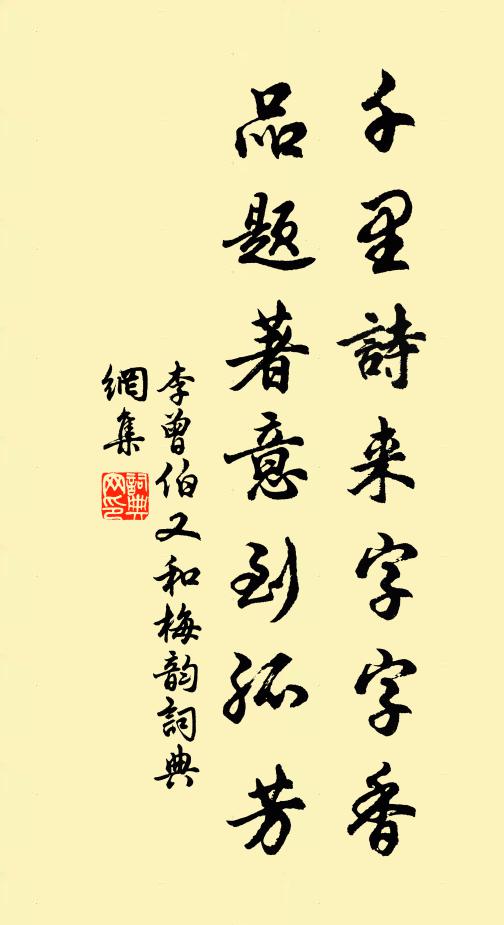 千里詩来字字香
品题著意到孤芳
李曾伯又和梅韵詞典
網集
詞典
网印